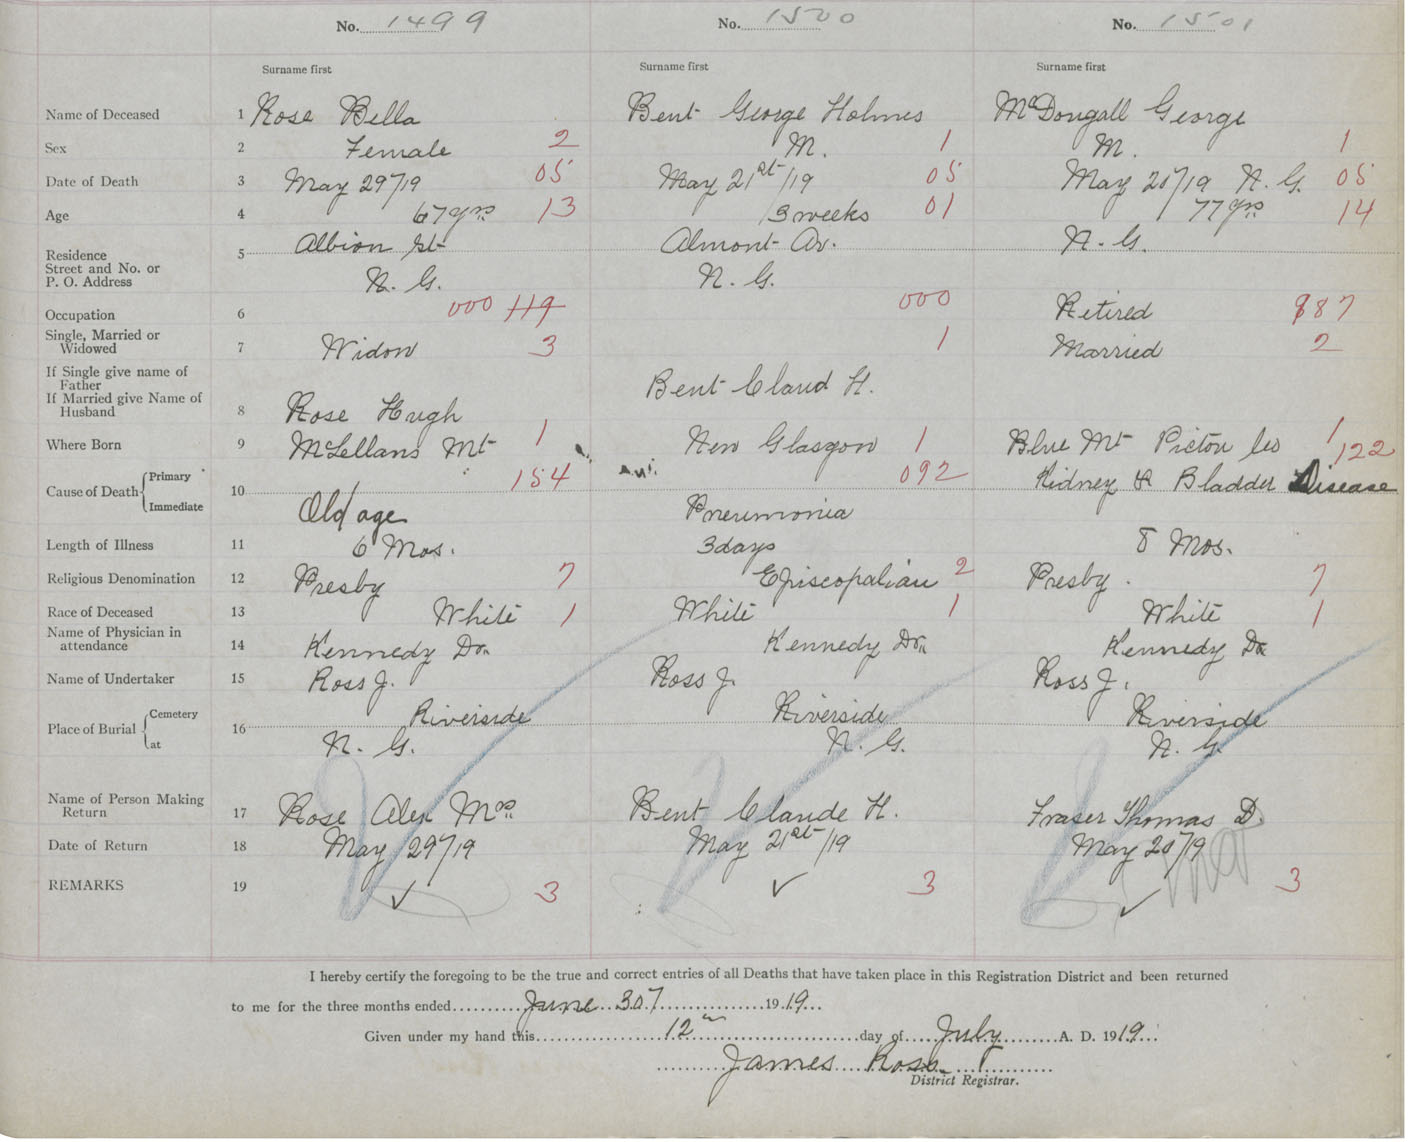 No. 1499 No. 1500 No. 1501
Surname first Surname first Surname first
Name of Deceased 1 Rose Bella Bent George Holmes McDougall George
Sex 2 Female 2 M. 1 M. 1
Date of Death 3 May 29/19 05 May 21st/19 05 May 20/19 N.G. 05
Age 4 67 yrs 13 3 weeks 01 77 yrs 14
Residence
Street and No. or
P. O. Address
5 Albion St Almont Av. N.G.
N.G. N.G.
Occupation 6 000 119 000 Retired 987
Single, Married or
Widowed
7 Widow 3 1 Married 2
If Single give name of
Father
If Married give Name of
Husband
Bent Claud H.
8 Rose Hugh
Where Born 9 McLellans Mt 1 New Glasgow 1 Blue Mt Pictou Co 1
Cause of Death Primary Immediate 10 154 092 122
Kidney & Bladder Disease
Old age Pneumonia
Length of Illness 11 6 Mos. 3 days 8 Mos.
Religious Denomination 12 Presby 7 Episcopalian 2 Presby. 7
Race of Deceased 13 White 1 White 1 White 1
Name of Physician in
attendance
14 Kennedy Dr. Kennedy Dr. Kennedy Dr
Name of Undertaker 15 Ross J. Ross J. Ross J.
Place of Burial Cemetery at 16 Riverside Riverside Riverside
N.G. N.G. N.G.
Name of Person Making
Return
17 Rose Alex Mrs Bent Claude H. Fraser Thomas D.
Date of Return 18 May 29/19 May 21st/19 May 20/19
REMARKS 19 3 3 3
I hereby certify the foregoing to be the true and correct entries of all Deaths that have taken place in this Registration District and been returned
to me for the three months ended June 30 1919
Given under my hand this 12th day of July A. D. 1919.
James Ross
District Registrar.